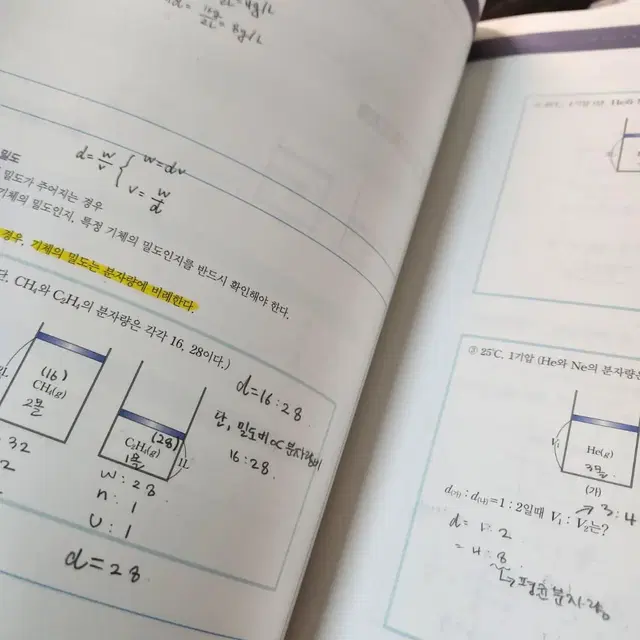 2L = 4g/L
16g
2L = 8g/L
밀도
d = w/v { w=dv
v= w/d
밀도가 주어지는 경우
기체의 밀도인지, 특정 기체의 밀도인지를 반드시 확인해야 한다.
경우, 기체의 밀도는 분자량에 비례한다.
단, CH₄와 C₂H₄의 분자량은 각각 16, 28이다.)
(16)
CH₄(g)
2몰
(28)
C₂H₄(g)
1몰
1L
: 32
2
w : 28
n : 1
v : 1
d = 28
d=16:28
단, 밀도비 ∝ 분자량비
16:28.
25℃, 1기압 (He와
③ 25℃, 1기압 (He와 Ne의 분자량은
V₁
He(g)
3몰
(가)
↗ 3:4
d(가) : d(나) = 1 : 2일때 V₁ : V₂는?
d = 1:2
= 4:8
↳ 평균분자량